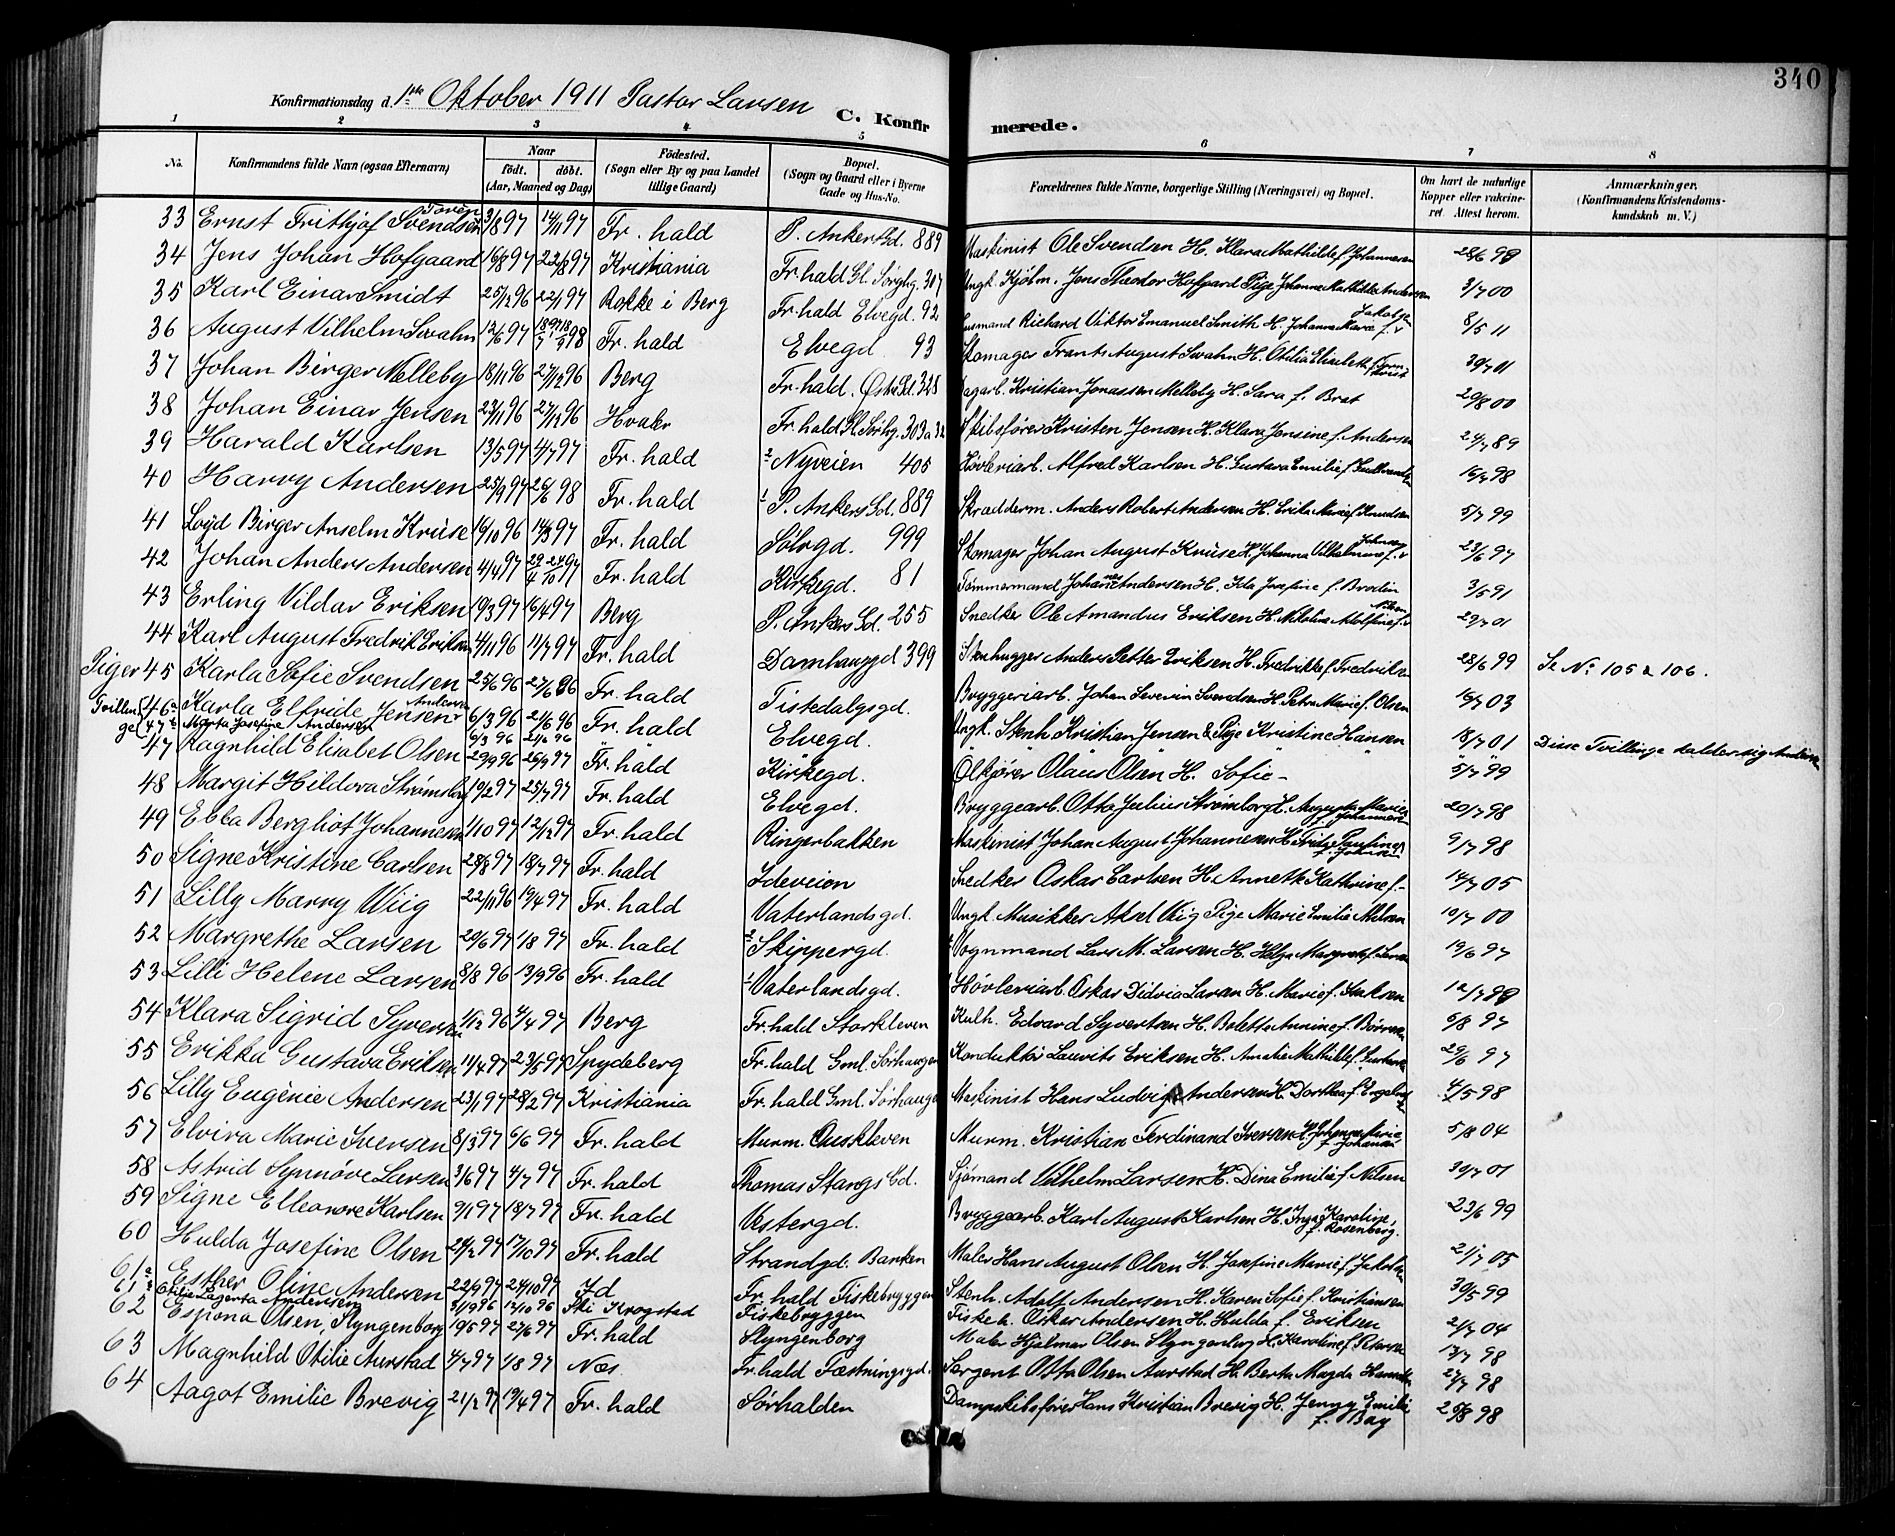 340
Konfirmationsdag d. 1ste Oktober 1911 Pastor Larsen
C. Konfirmerede.
1 2 3 4 5 6 7 8
No. Konfirmandens fulde Navn (ogsaa Efternavn) Naar født. døbt. (Aar, Maaned og Dag) Fødested. (Sogn eller By og paa Landet tillige Gaard) Bopæl. (Sogn og Gaard eller i Byerne Gade og Hus-No. Forældrenes fulde Navne, borgerlige Stilling (Næringsvei) og Bopæl. Om havt de naturlige Kopper eller vakcineret. Attest herom. Anmærkninger. (Konfirmandens Kristendomskundskab m. V.)
33 Ernst Frithjof Svendsen 3/8 97 14/11 97 Fr. hald P. Ankers Gd. 889 Maskinist Ole Svendsen H. Klara Mathilde f. Johannesen 28/6 98
34 Jens Johan Hofgaard 16/8 97 22/8 97 Kristiania Fr. hald Gl. Sørhg. 307 Ungk. Kjøbm. Jens Theodor Hofgaard Pige Johanne Mathilde Andersen 3/7 00
35 Karl Einar Smidt 25/12 96 22/1 97 Rokke i Berg Fr. hald Elvegd. 92 Husmand Richard Viktor Emanuel Smith H. Johanne Marie f. Jakobsen 8/5 11
36 August Vilhelm Svahn 12/6 97 Fr. hald Elvegd. 93 Skomager Frants August Svahn H. Otilia Elisabeth f. Tornkvist 30/7 01
37 Johan Birger Melleby 18/11 96 27/12 96 Berg Fr. hald. Østre Gd. 328 Dagarb. Kristian Jonassen Melleby H. Sara f. Brat 20/8 00
38 Johan Einar Jensen 23/11 96 27/12 96 Hvaler Fr. hald Gl. Sørhg. 303 Skibsfører Kristen Jensen H. Klara Jensine f. Andersen 24/7 89
39 Harald Karlsen 13/5 97 4/7 97 Fr. hald Nyveien 405 Høvleriarb. Alfred Karlsen H. Gustava Emilie f. 16/7 98
40 Harry Andersen 25/9 97 26/6 98 Fr. hald P. Ankers Gd. 889 Skrædderm. Anders Robert Andersen H. Erika Marie f. Knudsen 5/7 99
41 Loyd Birger Anselm Krüse 16/10 96 14/3 97 Fr. hald Sølvgd. 999 Skomager Johan August Krüse H. Johanna Vilhelmine f. Johnsen 23/6 97
42 Johan Anders Andersen 4/4 97 Fr. hald Kirkegd. 81 Tømmermand Johannes Andersen H. Ida Josefine f. Brodin 3/5 91
43 Erling Vildar Eriksen 19/3 97 16/4 97 Berg P. Ankers Gd. 255 Snedker Ole Amandus Eriksen H. Nikoline Adolfine f. Nilsen 29/7 01
44 Karl August Fredrik Eriksen 4/11 96 11/7 97 Fr. hald Damhauggd 399 Stenhugger Anders Petter Eriksen H. Fredrikke f. Fredriksen 28/6 99 Se No 105 & 106.
Piger 45 Karla Sofie Svendsen 25/6 96 27/6 96 Fr. hald Tistedalsgd. Bryggeriarb. Johan Severin Svendsen H. Petra Marie f. Olsen 16/7 03
Tvillinge 46 a Karla Elfride Jensen Andersen 6/3 96 21/6 96 Fr. hald Elvegd. Ungk. Stenh. Kristian Jensen & Pige Kristine Hansen 18/7 01 Disse Tvillinge kalder sig Andersen
47 b Marta Josefine Andersen 6/3 96 21/6 96 " " " " "
47 Ragnhild Elisabet Olsen 29/9 96 26/9 97 Fr. hald Kirkegd. Ølkjører Olaus Olsen H. Sofie - 5/7 99
48 Margit Hildora Strømsborg 19/2 97 25/7 97 Fr. hald Elvegd. Bryggearb. Otto Julius Strømborg H. Augusta Marie f. Johannesen 20/7 98
49 Ebba Bergliot Johannesen 1/10 97 12/12 97 Fr. hald Ringerbakken Maskinist Johan August Johannesen H. Pauline f. 9/7 98
50 Signe Kristine Carlsen 28/8 97 18/7 97 Fr. hald Ideveien Snedker Oskar Carlsen H. Anneth Kathrine f. - 14/7 05
51 Lilly Marry Wiig 22/11 96 19/4 97 Fr. hald Vaterlandsgd. Ungk. Musikker Aksel Wiig Pige Marie Emilie Nilsen 10/7 00
52 Margrethe Larsen 29/6 97 1/8 97 Fr. hald Skippergd. Vognmand Lars M. Larsen H. Helga Margrete f. 19/6 97
53 Lilli Helene Larsen 8/8 96 13/9 96 Fr. hald Vaterlandsgd. Høvleriarb. Oskar Didvia Larsen H. Marie f. Isaksen 12/7 98
54 Klara Sigrid Syversen 1/12 96 4/4 97 Berg Fr. hald Storkleven Kulh. Edvard Syvertsen H. Bolette Annine f. 6/8 97
55 Erikka Gustava Eriksen 11/4 97 23/5 97 Spydeberg Fr. hald Gml. Sørhaugen Konduktør Lauvits Eriksen H. Amalie Mathilde f. 29/6 97
56 Lilly Eugènie Andersen 23/1 97 28/2 97 Kristiania Fr. hald Gml. Sørhaugen Maskinist Hans Ludvig Andersen H. Dorthea f. 4/5 98
57 Elvira Marie Iversen 8/3 97 6/6 97 Fr. hald Murm. Ouskleven Murm. Kristian Ferdinand Iversen H. Johanne Marie f. Johansen 5/8 04
58 Astrid Synnöve Larsen 3/6 97 4/7 97 Fr. hald Thomas Stangs Gd. Sjømand Vilhelm Larsen H. Dina Emilie f. Nilsen 30/7 01
59 Signe Elleonore Karlsen 9/1 97 18/7 97 Fr. hald Vestergd. Bryggearb. Karl August Karlsen H. Inga Karoline f. Rosenberg. 23/6 99
60 Hulda Josefine Olsen 24/2 97 17/10 97 Fr. hald Strandgd. Banken Maler Hans August Olsen H. Josefine Marie f. Jakobsen 21/7 05
61 a Esther Oline Andersen 22/9 97 24/10 97 Id Fr. hald Fiskebryggen Stenh. Adolf Andersen H. Karen Sofie f. Kristiansen 30/5 99
61 b Otilie Lagerta Andersen 31/9 96 17/10 96 Ski Krogstad Fiskebryggen Fiskeh. Oskar Andersen H. Hulda f. Eriksen 2/7 04
62 Espiona Olsen, Slyngenborg 19/5 97 27/6 97 Fr. hald Slyngenborg Maler Hjalmar Olsen Slyngenborg H. Karoline f. Petersen 13/7 98
63 Magnhild Otilie Aurstad 4/7 97 1/8 97 Næs Fr. hald Fæstningsgd. Sergent Otto Olsen Aurstad H. Berta Magda 27/7 98
64 Aagot Emilie Brevig 21/2 97 19/4 97 Fr. hald Sørhalden Dampskibsfører Hans Kristian Brevig H. Jenny Emilie f. Bay 25/8 98